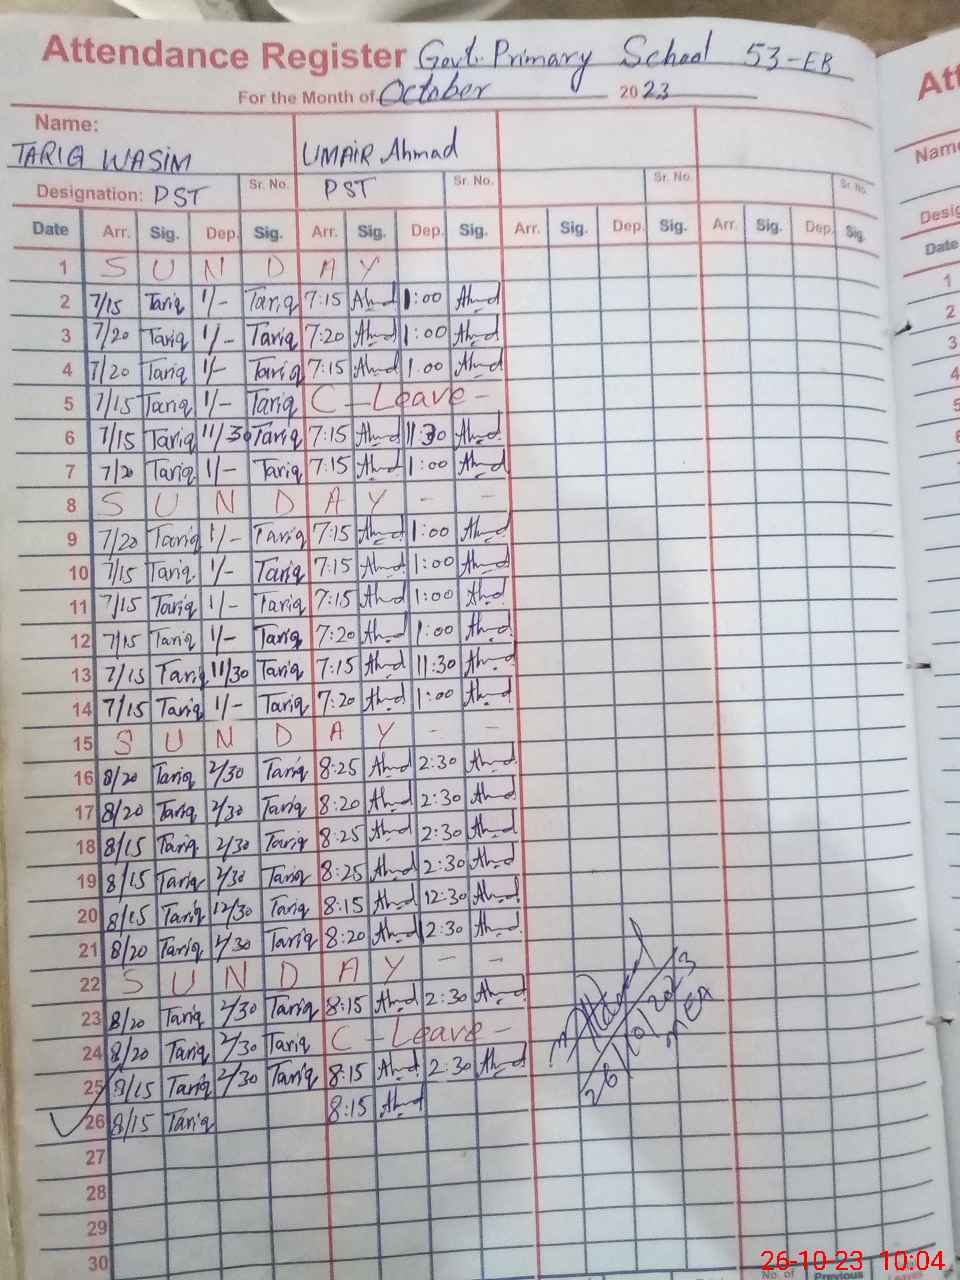 Attendance Register Govt. Primary School 53-EB
For the Month of October 2023
Name:
TARIQ WASIM UMAIR Ahmad
Designation: PST Sr. No. PST Sr. No. Sr. No. Sr. No.
Date Arr. Sig. Dep. Sig. Arr. Sig. Dep. Sig. Arr. Sig. Dep. Sig. Arr. Sig. Dep. Sig.
1 S U N D A Y
2 7/15 Tariq 1/- Tariq 7:15 Ahmd 1:00 Ahmd
3 7/20 Tariq 1/- Tariq 7:20 Ahmd 1:00 Ahmd
4 7/20 Tariq 1/- Tariq 7:15 Ahmd 1:00 Ahmd
5 7/15 Tariq 1/- Tariq C - Leave -
6 7/15 Tariq 11/30 Tariq 7:15 Ahmd 11:30 Ahmd
7 7/20 Tariq 1/- Tariq 7:15 Ahmd 1:00 Ahmd
8 S U N D A Y - -
9 7/20 Tariq 1/- Tariq 7:15 Ahmd 1:00 Ahmd
10 7/15 Tariq 1/- Tariq 7:15 Ahmd 1:00 Ahmd
11 7/15 Tariq 1/- Tariq 7:15 Ahmd 1:00 Ahmd
12 7/15 Tariq 1/- Tariq 7:20 Ahmd 1:00 Ahmd
13 7/15 Tariq 11/30 Tariq 7:15 Ahmd 11:30 Ahmd
14 7/15 Tariq 1/- Tariq 7:20 Ahmd 1:00 Ahmd
15 S U N D A Y - -
16 8/20 Tariq 2/30 Tariq 8:25 Ahmd 2:30 Ahmd
17 8/20 Tariq 2/30 Tariq 8:20 Ahmd 2:30 Ahmd
18 8/15 Tariq 2/30 Tariq 8:25 Ahmd 2:30 Ahmd
19 8/15 Tariq 2/30 Tariq 8:25 Ahmd 2:30 Ahmd
20 8/15 Tariq 12/30 Tariq 8:15 Ahmd 12:30 Ahmd
21 8/20 Tariq 2/30 Tariq 8:20 Ahmd 2:30 Ahmd
22 S U N D A Y - -
23 8/20 Tariq 2/30 Tariq 8:15 Ahmd 2:30 Ahmd
24 8/20 Tariq 2/30 Tariq C - Leave -
25 8/15 Tariq 2/30 Tariq 8:15 Ahmd 2:30 Ahmd
26 8/15 Tariq 8:15 Ahmd
26/10/2023
MEA
27
28
29
30
No. of Previous
Att
Name
Desig
Date
1
2
3
4
5
6
26-10-23 10:04